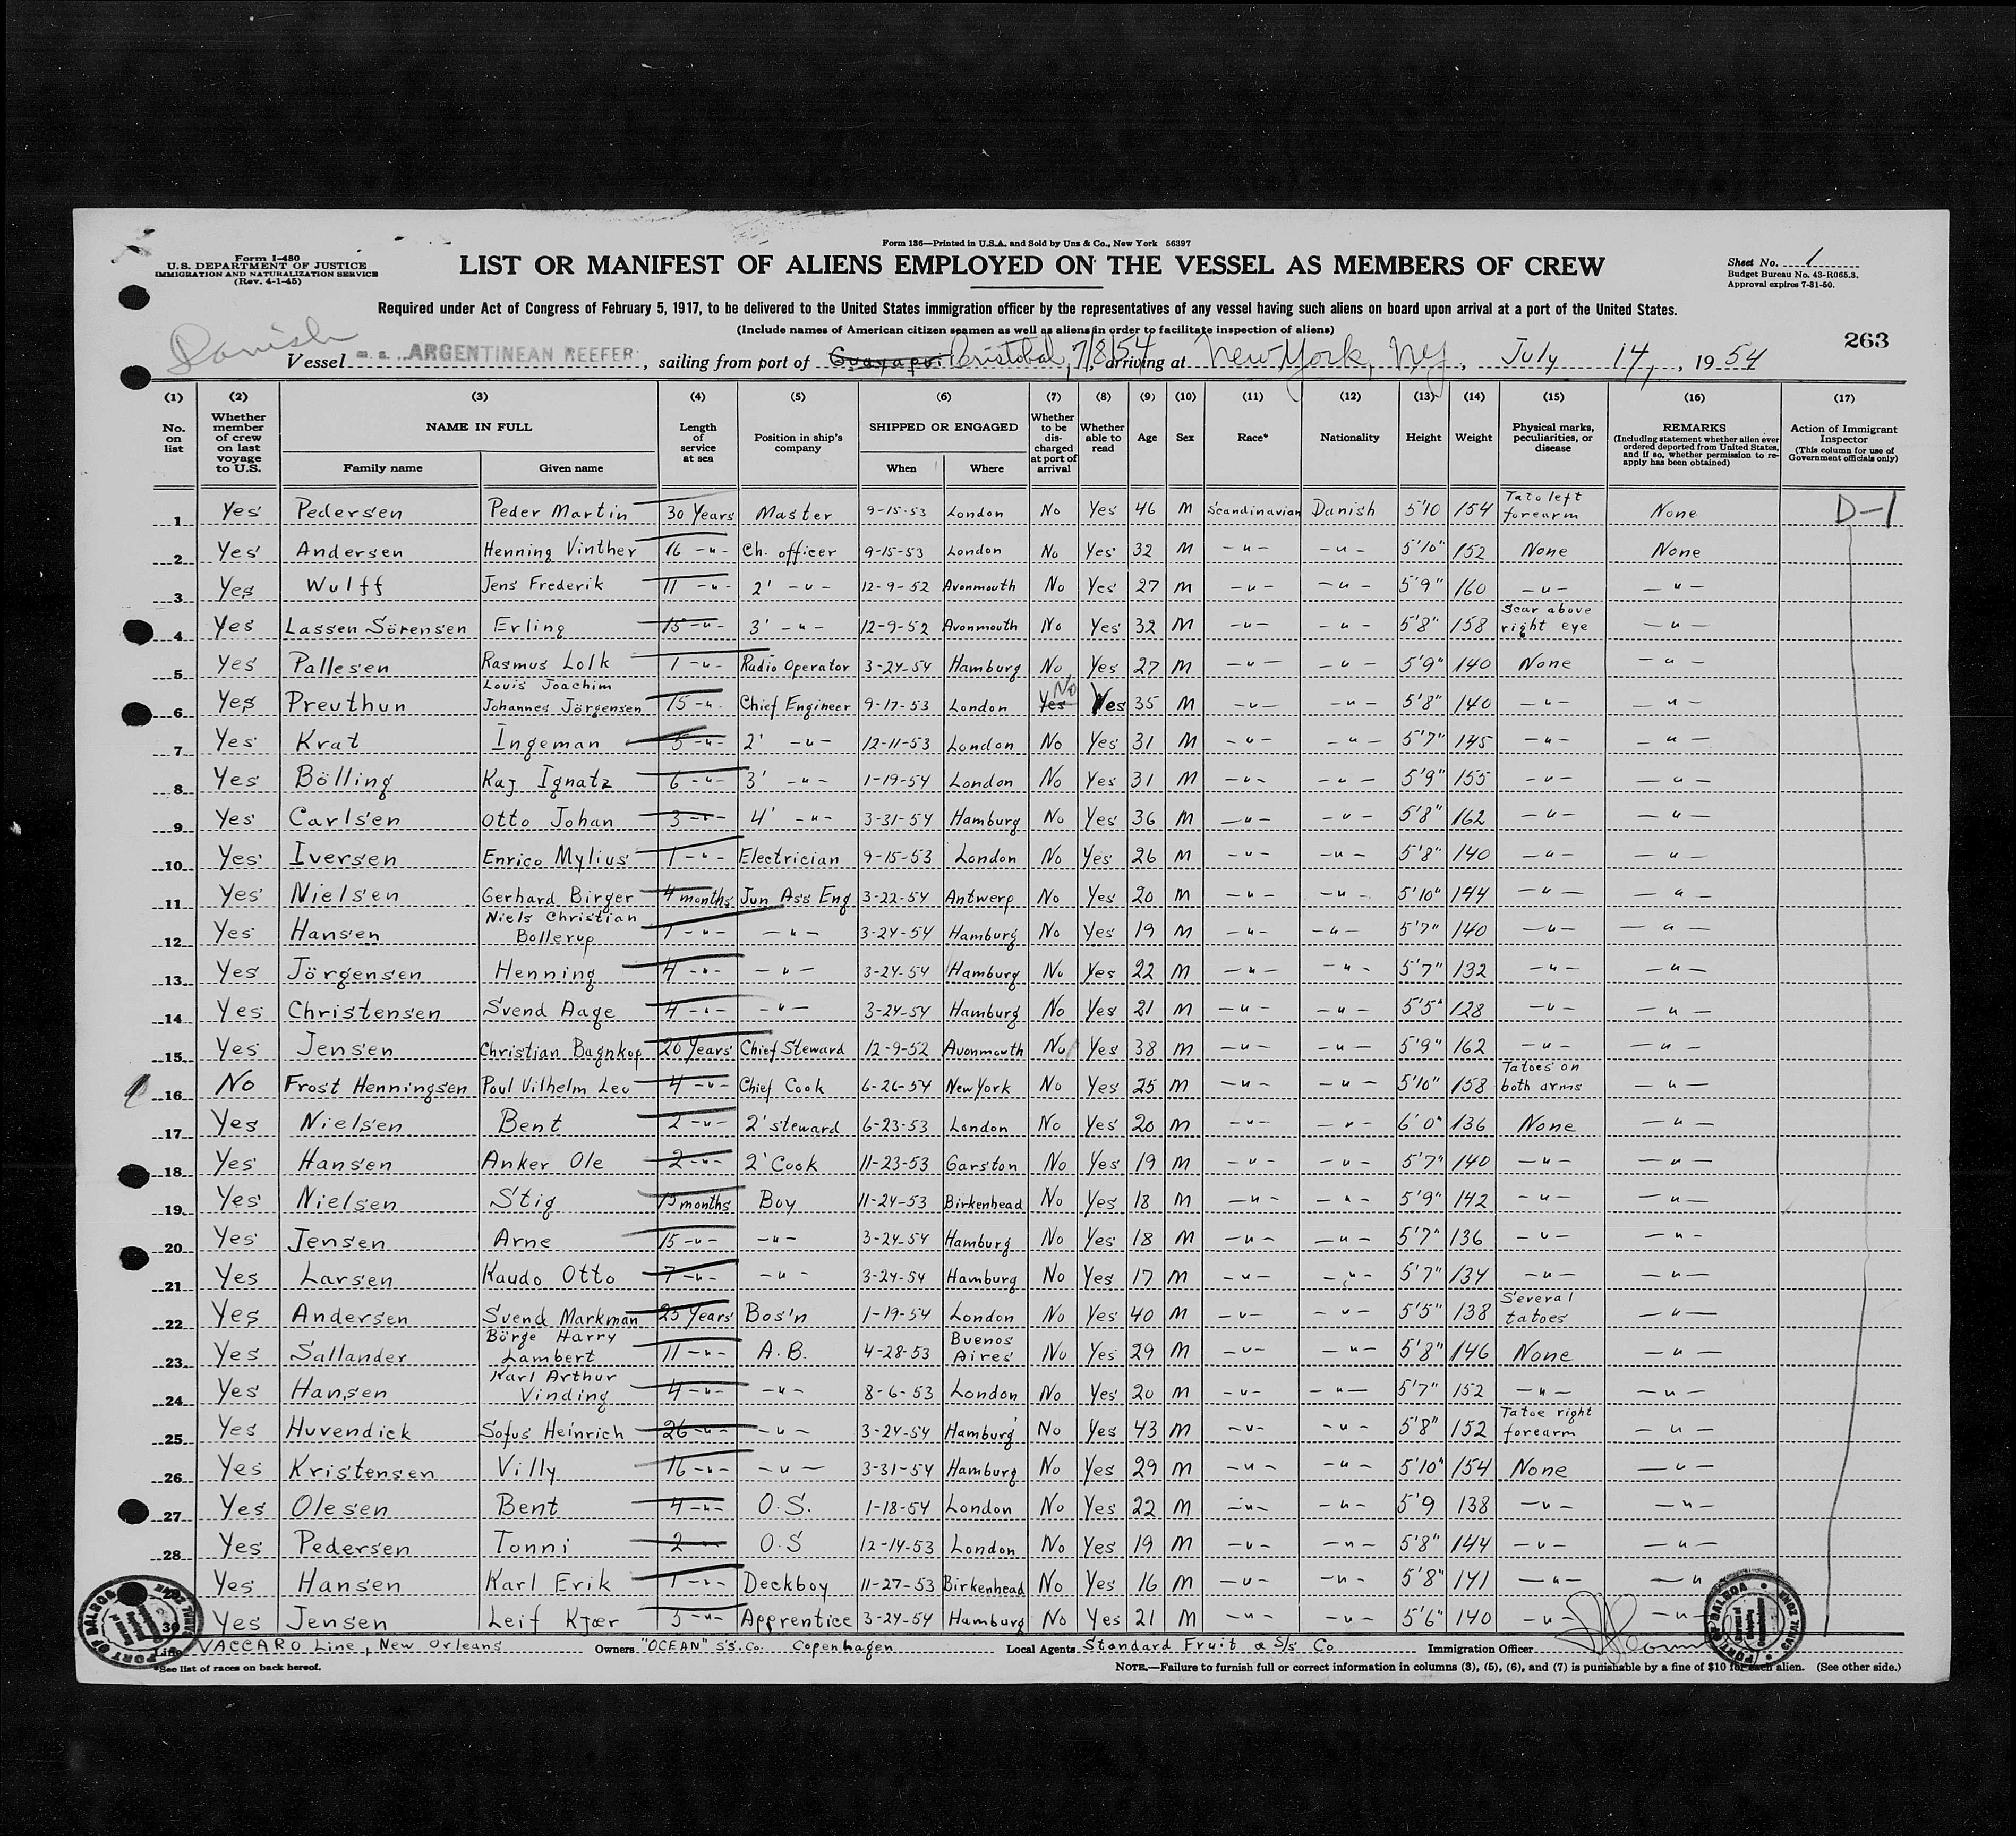 Form 136—Printed in U.S.A. and Sold by Unz & Co., New York 56397
Form I-480
U.S. DEPARTMENT OF JUSTICE
IMMIGRATION AND NATURALIZATION SERVICE
(Rev. 4-1-45)
LIST OR MANIFEST OF ALIENS EMPLOYED ON THE VESSEL AS MEMBERS OF CREW
Sheet No. 1
Budget Bureau No. 43-R065.3.
Approval expires 7-31-50.
Required under Act of Congress of February 5, 1917, to be delivered to the United States immigration officer by the representatives of any vessel having such aliens on board upon arrival at a port of the United States.
(Include names of American citizen seamen as well as aliens in order to facilitate inspection of aliens)
263
Danish
Vessel m.s. ARGENTINEAN REEFER, sailing from port of Cristobal, 7/8/54, arriving at New York, NY, July 14, 1954
(1) (2) (3) (4) (5) (6) (7) (8) (9) (10) (11) (12) (13) (14) (15) (16) (17)
No. on list
Whether member of crew on last voyage to U.S.
NAME IN FULL
Family name Given name
Length of service at sea
Position in ship's company
SHIPPED OR ENGAGED
When Where
Whether to be discharged at port of arrival
Whether able to read
Age Sex Race* Nationality Height Weight
Physical marks, peculiarities, or disease
REMARKS
(Including statement whether alien ever ordered deported from United States, and if so, whether permission to reapply has been obtained)
Action of Immigrant Inspector
(This column for use of Government officials only)
1 Yes Pedersen Peder Martin 30 Years Master 9-15-53 London No Yes 46 M Scandinavian Danish 5'10 154 Tato left forearm None D-1
2 Yes Andersen Henning Vinther 16 -"- Ch. officer 9-15-53 London No Yes 32 M -"- -"- 5'10" 152 None None
3 Yes Wulff Jens Frederik 11 -"- 2' -"- 12-9-52 Avonmouth No Yes 27 M -"- -"- 5'9" 160 -"- -"-
4 Yes Lassen Sörensen Erling 15 -"- 3' -"- 12-9-52 Avonmouth No Yes 32 M -"- -"- 5'8" 158 Scar above right eye -"-
5 Yes Pallesen Rasmus Lolk 1 -"- Radio Operator 3-24-54 Hamburg No Yes 27 M -"- -"- 5'9" 140 None -"-
6 Yes Preuthun Louis Joachim Johannes Jörgensen 15 -"- Chief Engineer 9-17-53 London Yes No Yes 35 M -"- -"- 5'8" 140 -"- -"-
7 Yes Krat Ingeman 5 -"- 2' -"- 12-11-53 London No Yes 31 M -"- -"- 5'7" 145 -"- -"-
8 Yes Bölling Kaj Ignatz 6 -"- 3' -"- 1-19-54 London No Yes 31 M -"- -"- 5'9" 155 -"- -"-
9 Yes Carlsen Otto Johan 3 -"- 4' -"- 3-31-54 Hamburg No Yes 36 M -"- -"- 5'8" 162 -"- -"-
10 Yes Iversen Enrico Mylius 1 -"- Electrician 9-15-53 London No Yes 26 M -"- -"- 5'8" 140 -"- -"-
11 Yes Nielsen Gerhard Birger 4 months Jun Ass Eng 3-22-54 Antwerp No Yes 20 M -"- -"- 5'10" 144 -"- -"-
12 Yes Hansen Niels Christian Bollerup -"- -"- 3-24-54 Hamburg No Yes 19 M -"- -"- 5'7" 140 -"- -"-
13 Yes Jörgensen Henning 4 -"- -"- 3-24-54 Hamburg No Yes 22 M -"- -"- 5'7" 132 -"- -"-
14 Yes Christensen Svend Aage 4 -"- -"- 3-24-54 Hamburg No Yes 21 M -"- -"- 5'5" 128 -"- -"-
15 Yes Jensen Christian Bagnkop 20 Years Chief Steward 12-9-52 Avonmouth No Yes 38 M -"- -"- 5'9" 162 -"- -"-
16 No Frost Henningsen Poul Vilhelm Leo 4 -"- Chief Cook 6-26-54 New York No Yes 25 M -"- -"- 5'10" 158 Tatoes on both arms -"-
17 Yes Nielsen Bent 2 -"- 2' steward 6-23-53 London No Yes 20 M -"- -"- 6'0" 136 None -"-
18 Yes Hansen Anker Ole 2 -"- 2' Cook 11-23-53 Garston No Yes 19 M -"- -"- 5'7" 140 -"- -"-
19 Yes Nielsen Stig months Boy 11-24-53 Birkenhead No Yes 18 M -"- -"- 5'9" 142 -"- -"-
20 Yes Jensen Arne 15 -"- -"- 3-24-54 Hamburg No Yes 18 M -"- -"- 5'7" 136 -"- -"-
21 Yes Larsen Kaudo Otto 7 -"- -"- 3-24-54 Hamburg No Yes 17 M -"- -"- 5'7" 134 -"- -"-
22 Yes Andersen Svend Markman 25 Years Bos'n 1-19-54 London No Yes 40 M -"- -"- 5'5" 138 Several tatoes -"-
23 Yes Sallander Börge Harry Lambert 11 -"- A.B. 4-28-53 Buenos Aires No Yes 29 M -"- -"- 5'8" 146 None -"-
24 Yes Hansen Karl Arthur Vinding 4 -"- -"- 8-6-53 London No Yes 20 M -"- -"- 5'7" 152 -"- -"-
25 Yes Huvendick Sofus Heinrich 26 -"- -"- 3-24-54 Hamburg No Yes 43 M -"- -"- 5'8" 152 Tatoe right forearm -"-
26 Yes Kristensen Villy 16 -"- -"- 3-31-54 Hamburg No Yes 29 M -"- -"- 5'10" 154 None -"-
27 Yes Olesen Bent 4 -"- O.S. 1-18-54 London No Yes 22 M -"- -"- 5'9 138 -"- -"-
28 Yes Pedersen Tonni 2 -"- O.S 12-14-53 London No Yes 19 M -"- -"- 5'8" 144 -"- -"-
Yes Hansen Karl Erik 1 -"- Deckboy 11-27-53 Birkenhead No Yes 16 M -"- -"- 5'8" 141 -"- -"
30 Yes Jensen Leif Kjær -"- Apprentice 3-24-54 Hamburg No Yes 21 M -"- -"- 5'6" 140 -"- -"-
PORT OF BALBOA CANAL ZONE
PORT OF BALBOA CANAL ZONE
Line VACCARO Line, New Orleans Owners "OCEAN" S.S. Co. Copenhagen Local Agents Standard Fruit & S/S Co Immigration Officer
*See list of races on back hereof.
NOTE.—Failure to furnish full or correct information in columns (3), (5), (6), and (7) is punishable by a fine of $10 for each alien. (See other side.)